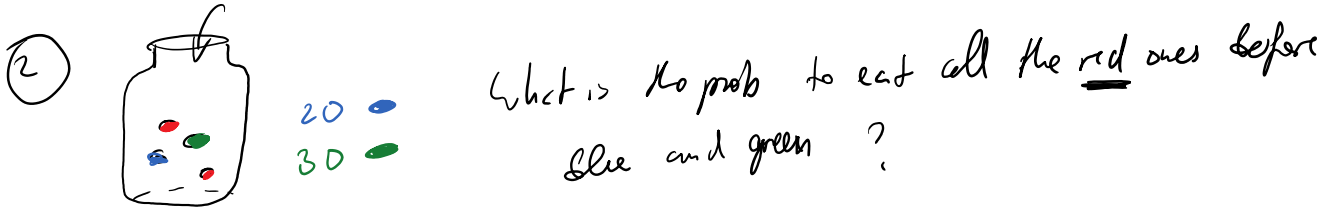 2
What is the prob to eat all the red ones before
20
30
blue and green ?